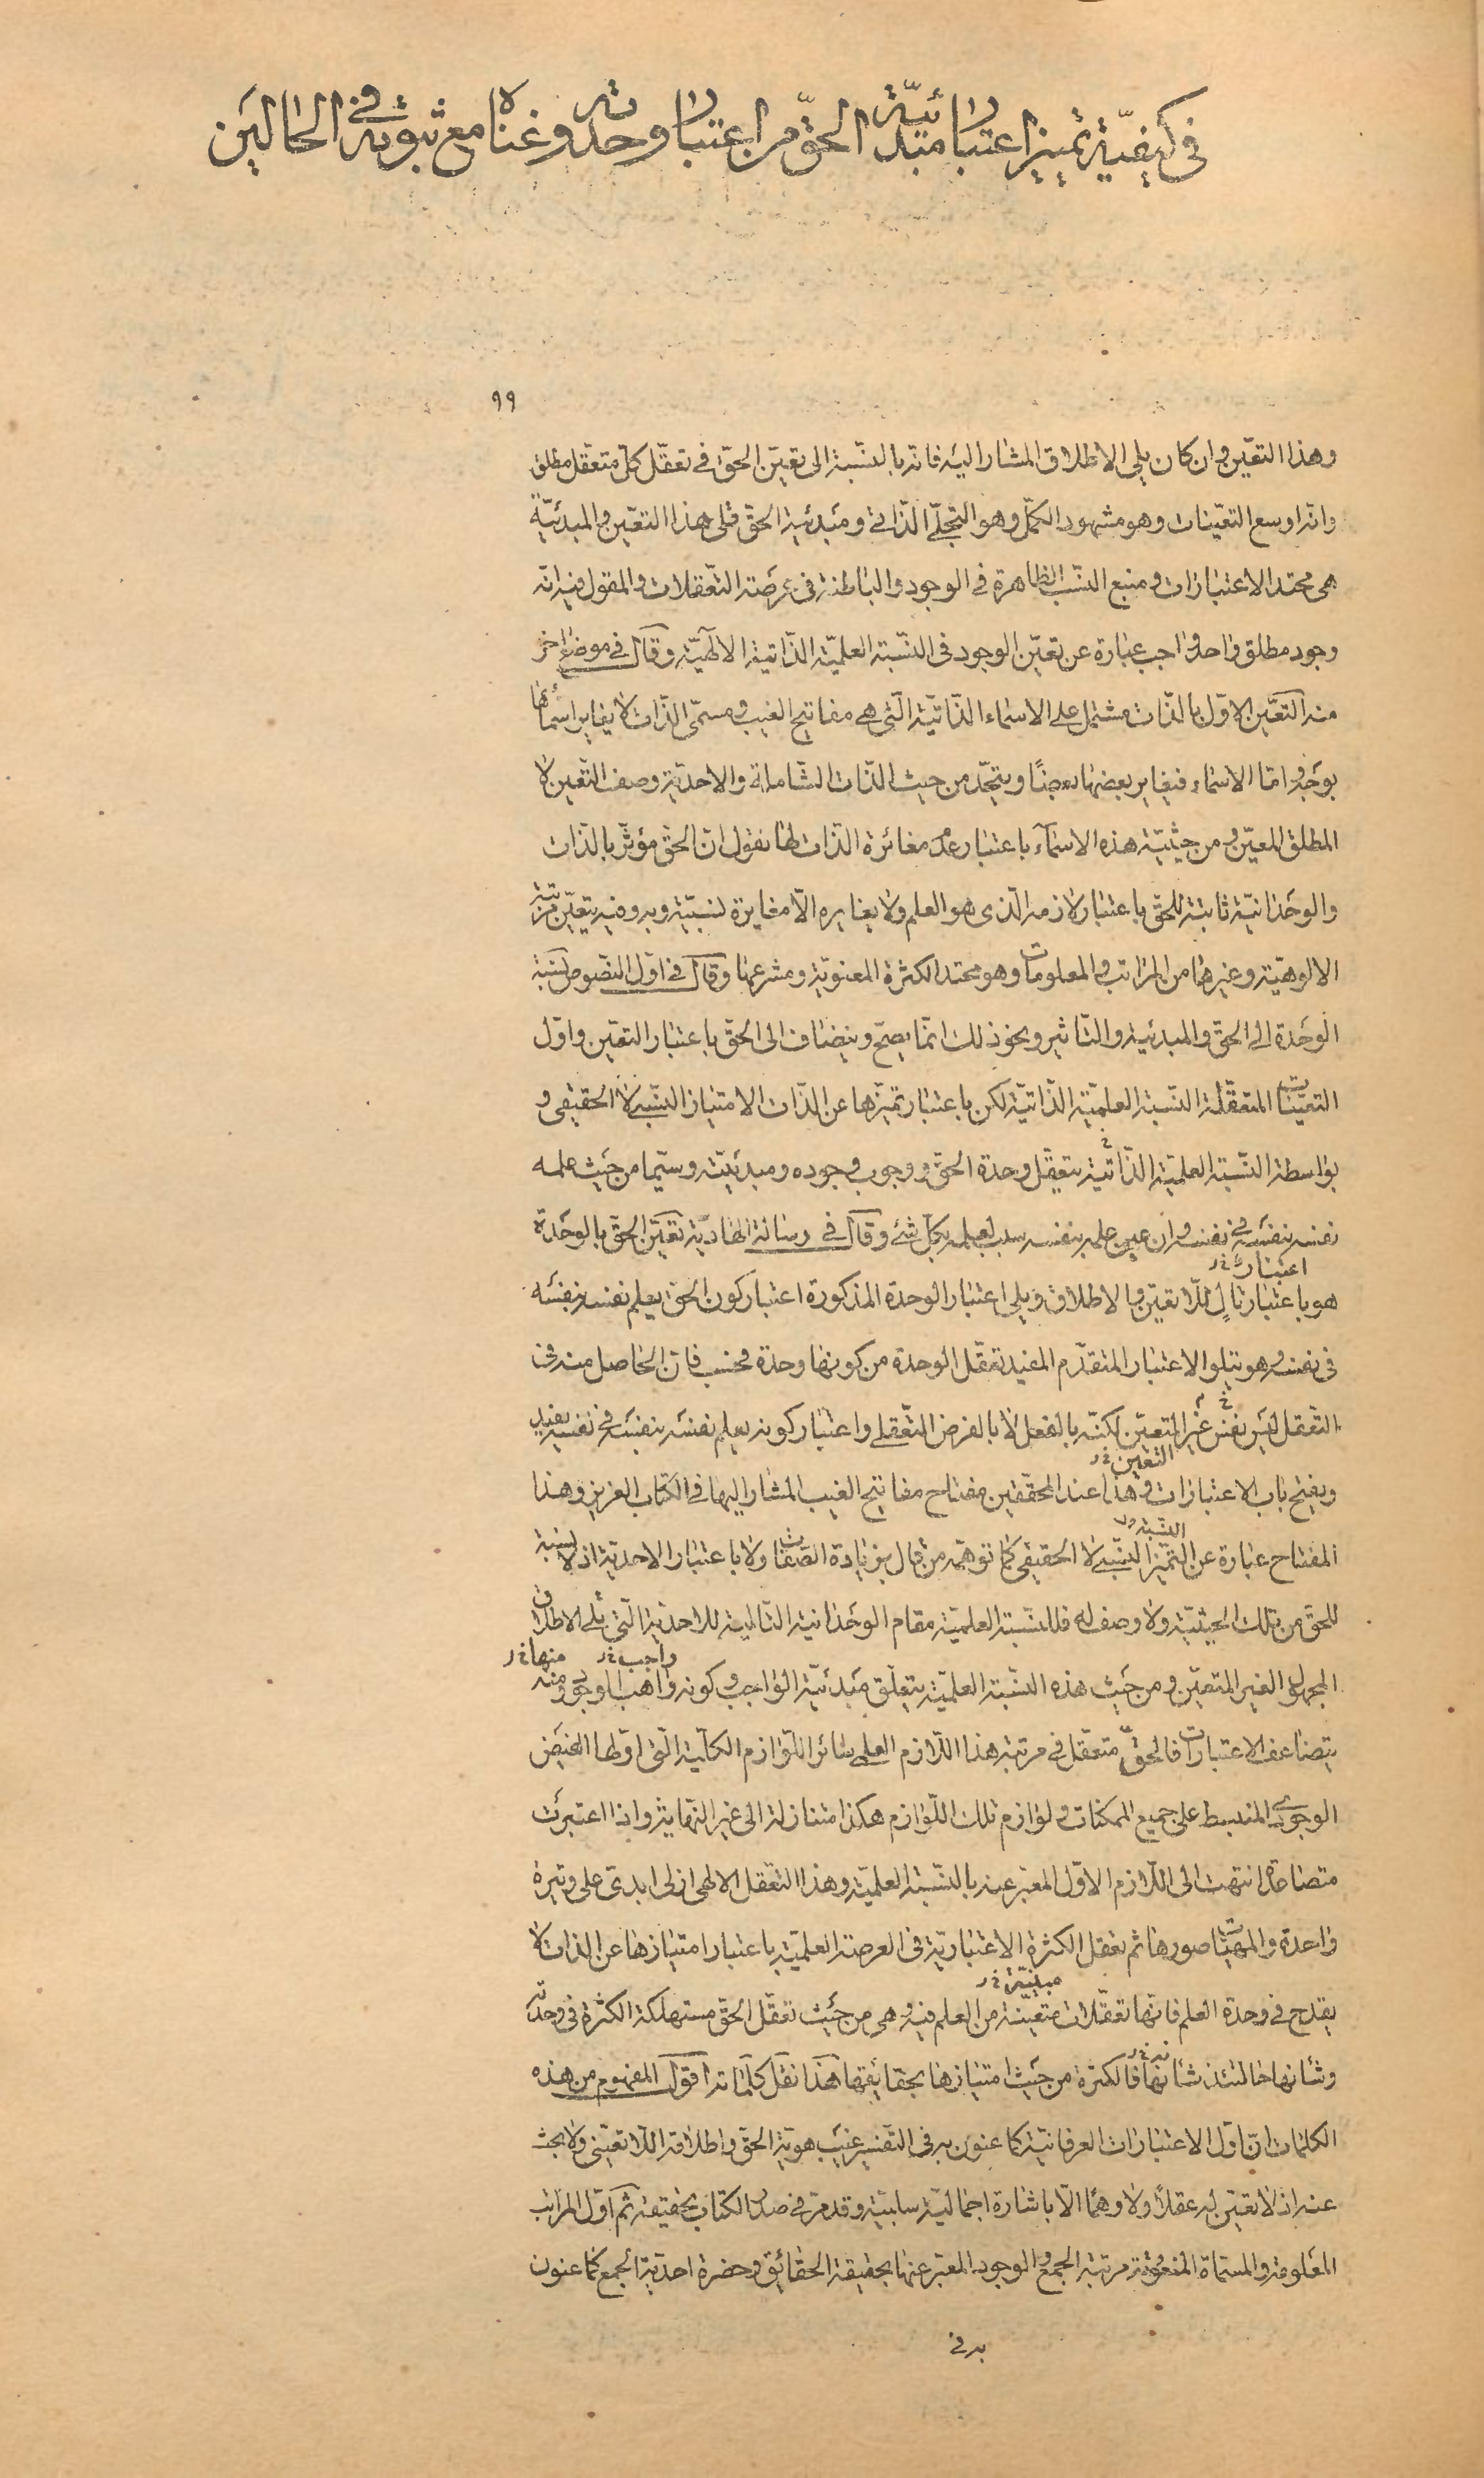 في كيفيّة تميز اعتبار مبدائيّة الحقّ من اعتبار وحدته وغناه مع ثبوته في الحالين
٩٩
وهذا التعيّن وان كان يلى الاطلاق المشار اليه فانه بالنسبة الى تعيّن الحقّ في تعقّل كلّ متعقّل مطلق
وانه اوسع التعيّنات وهو مشهود الكمّل وهو التجلّى الذّاتى ومبدئية الحقّ تلى هذا التعيّن والمبدئيّة
هى محتد الاعتبارات ومنبع النسب الظاهرة في الوجود والباطنة فى عرصة التّعقلات والمقول فيه انه
وجود مطلق واحد واجب عبارة عن تعيّن الوجود فى النسّبة العلميّة الذّاتية الالهيّة وقال في موضع اخر
منه التعّين الاوّل بالذّات مشتمل على الاسماء الذّاتيّة الّتى هى مفاتيح الغيب ومسمّى الذّات لا يغاير اسمائها
بوجه وامّا الاسماء فيغاير بعضها بعضًا ويتحّد من حيث الذّات الشّاملة والاحديّة وصف التّعين لا
المطلق المعيّن ومن حيثيّة هذه الاسمآء باعتبار عدم مغائرة الذّات لها نقول انّ الحقّ مؤثّر بالذّات
والوحدانيّة ثابتة للحقّ باعتبار لازمه الّذى هو العلم ولا يغايره الّا مغايرة نسبيّة وبه وفيه يتعيّن مرتبة
الالوهيّة وغيرها من المراتب والمعلومات وهو محتد الكثرة المعنويّة ومشرعها وقال في اوّل النّصوص نسبة
الوحدة الى الحقّ والمبدئية والتّاثير ونحو ذلك انمّا يصحّ وينضاف الى الحقّ باعتبار التعيّن واوّل
التعيّنات المتعقّلة النسّبة العلميّة الذّاتيّة لكن باعتبار تميّزها عن الذّات الامتياز النّسبى لا الحقيقى و
بواسطة النسّبة العلميّة الذّاتيّة يتعقّل وحدة الحقّ ووجوب وجوده ومبدئيّته وسيّما من حيث علمه
نفسه بنفسه في نفسه وان عين علمه بنفسه سبب لعلمه بكلّ شئ وقال في رسالة الهادية تعيّن الحقّ بالوحدة
اعتبار خ ر
هو باعتبار تالٍ للّا تعيّن والاطلاق ويلى اعتبار الوحدة المذكورة اعتبار كون الحقّ يعلم نفسه بنفسه
فى نفسه وهو يتلو الاعتبار المتقدّم المفيد تعقّل الوحدة من كونها وحدة فحسب فانّ الحاصل منه فى
التّعقل ليس نفس غير المتعيّن لكنّه بالفعل لا بالفرض التّعقلى واعتبار كونه يعلم نفسه بنفسه في نفسه يفيد
التعين خ ر
ويفتح باب الاعتبارات وهذا عند المحقّقين مفتاح مفاتيح الغيب المشار اليها في الكتاب العزيز وهذا
النسبة
المفتاح عبارة عن التميّز النسّبى لا الحقيقى كما توهّمه من قال بزيادة الصّفات ولا باعتبار الاحديّة اذ لا نسبة
للحقّ من تلك الحيثيّة ولا وصف له فللنسّبة العلميّة مقام الوحدانية التّالية للاحديّة الّتى تلى الاطلاق
واجب خ ر منها خ ر
المجهول الغير المتعيّن ومن حيث هذه النسّبة العلميّة يتعلّق مبدئيّة الواجب وكونه واهب الوجود ومنه
يتضاعف الاعتبارات فالحقّ متعقّل في مرتبة هذا اللّازم العلمى سائر اللّوازم الكلّية الّتى اوّلها الفيض
الوجودى المنبسط على جميع الممكنات ولوازم تلك اللّوازم هكذا متنازلة الى غير النّهاية واذا اعتبرت
متصاعدة انتهت الى اللّازم الاوّل المعّبر عنه بالنسّبة العلميّة وهذا التعّقل الالهى ازلى ابدىّ على وتيرة
واحدة والمهيّات صورها ثم تعقل الكثرة الاعتباريّة فى العرصة العلميّة باعتبار امتيازها عن الذات لا
خ ر
يقدح في وحدة العلم فانّها تعقّلات متعيّنة من العلم فيه وهى من حيث تعقّل الحقّ مستهلكة الكثرة في وحدته
وشانها حالتئذ شانها فالكثرة من حيث امتيازها بحقايقها هذا نقل كلماته اقول المفهوم من هذه
الكلمات انّ اوّل الاعتبارات العرفانيّة كما عنون به في التّفسير غيب هويّة الحقّ واطلاقه اللّا تعيّنى ولا بحث
عنه اذ لا تعيّن له عقلًا ولا وهمًا الّا باشارة اجماليّة سلبيّة وقد مرّ في صدر الكتاب تحقيقه ثم اوّل المراتب
المعلومة والمسمّاة المنعوتة مرتبة الجمع والوجود المعّبر عنها بحقيقة الحقائق وحضرة احديّة الجمع كما عنون
به فى